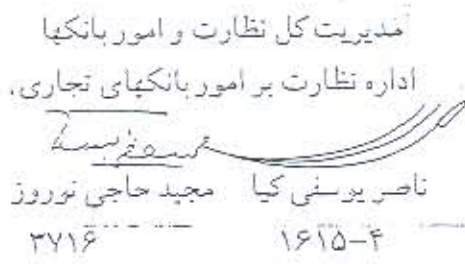 مدیریت کل نظارت و امور بانکها
اداره نظارت بر امور بانکهای تجاری،
ناصر یوسفی کیا مجید حاجی نوروز
۱۶۱۵-۴ ۳۷۱۶